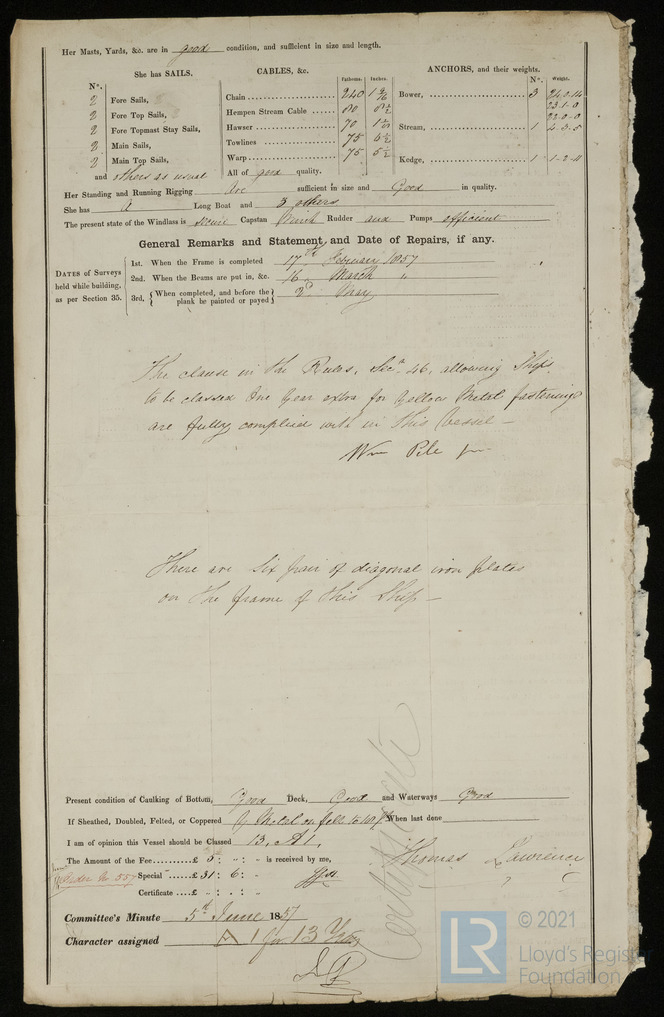 Her Masts, Yards, &c. are in good condition, and sufficient in size and length.
She has SAILS.
Nº.
2 Fore Sails,
2 Fore Top Sails,
2 Fore Topmast Stay Sails,
2 Main Sails,
2 Main Top Sails,
and others as usual
CABLES, &c.
Fathoms. Inches.
Chain 240 1 9/16
Hempen Stream Cable 80 8½
Hawser 70
Towlines 75 6½
Warp 75 5½
All of good quality.
ANCHORS, and their weights.
Nº. Weight.
Bower, 3 24.0.14
23.1.0
22.0.0
Stream, 1 4.3.5
Kedge, 1 1.2.4
Her Standing and Running Rigging Are sufficient in size and Good in quality.
She has A Long Boat and 3 others
The present state of the Windlass is Capstan Winch Rudder and Pumps efficient
General Remarks and Statement and Date of Repairs, if any.
DATES of Surveys held while building, as per Section 35.
1st. When the Frame is completed 17th February 1857
2nd. When the Beams are put in, &c. 16 March "
3rd. { When completed, and before the plank be painted or payed } 2d May
The clause in the Rules, Secn. 46, allowing Ships
to be classed One Year extra for Yellow Metal fastenings
are fully complied with in this Vessel —
Wm Pile jnr
There are six pair of diagonal iron plates
on the frame of this Ship —
Present condition of Caulking of Bottom, Good Deck, Good and Waterways Good
If Sheathed, Doubled, Felted, or Coppered Y Metal on felt to When last done
I am of opinion this Vessel should be Classed 13, A1,
The Amount of the Fee £ 5 : " : - is received by me,
Thomas Lawrence
Special £ 31 : 6 : -
Certificate £ - : - : -
Committee's Minute 5th June 1857
Character assigned A 1 for 13 Years
LR
© 2021
Lloyd's Register
Foundation